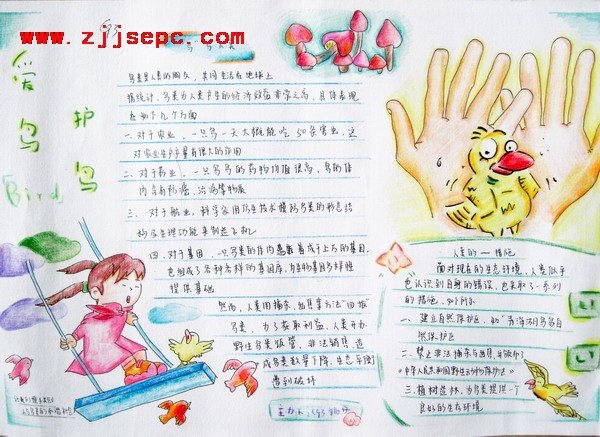 www.zjjsepc.com
爱鸟
护鸟
Bird
鸟类是人类的朋友，共同生活在地球上
据统计，鸟类为人类产生的经济效益非常之高，具体表现
在如下几个方面
一、对于农业，一只鸟一天大概能吃50条害虫，这
对农业生产着有很大的作用
二、对于药业，一只鸟鸟的药物价值很高，鸟的体
内含有防癌、治病等物质
三、对于航业，科学家用仿生技术模仿鸟类的形态结
构与生理功能来制造飞机
四、对于基因，一只鸟类的体内蕴藏着成千上万的基因，
它组成了各种各样的基因库，为生物基因多样性
提供基础
然而，人类用捕杀、出具等方法“回报”
鸟类，为了获取利益，人类开办
野生鸟类饭馆，非法销售，造
成鸟类数量下降，生态平衡
遭到破坏
人类的一措施
面对现在的生态环境，人类似乎
也认识到自身的错误，也采取了一系列
的措施，如下所示
一、建立自然保护区，如“青海湖鸟岛自
然保护区
二、禁止非法捕杀与出具
《中华人民共和国野生动物保护法》
三、植树造林，为鸟类提供一个
良好的生存环境